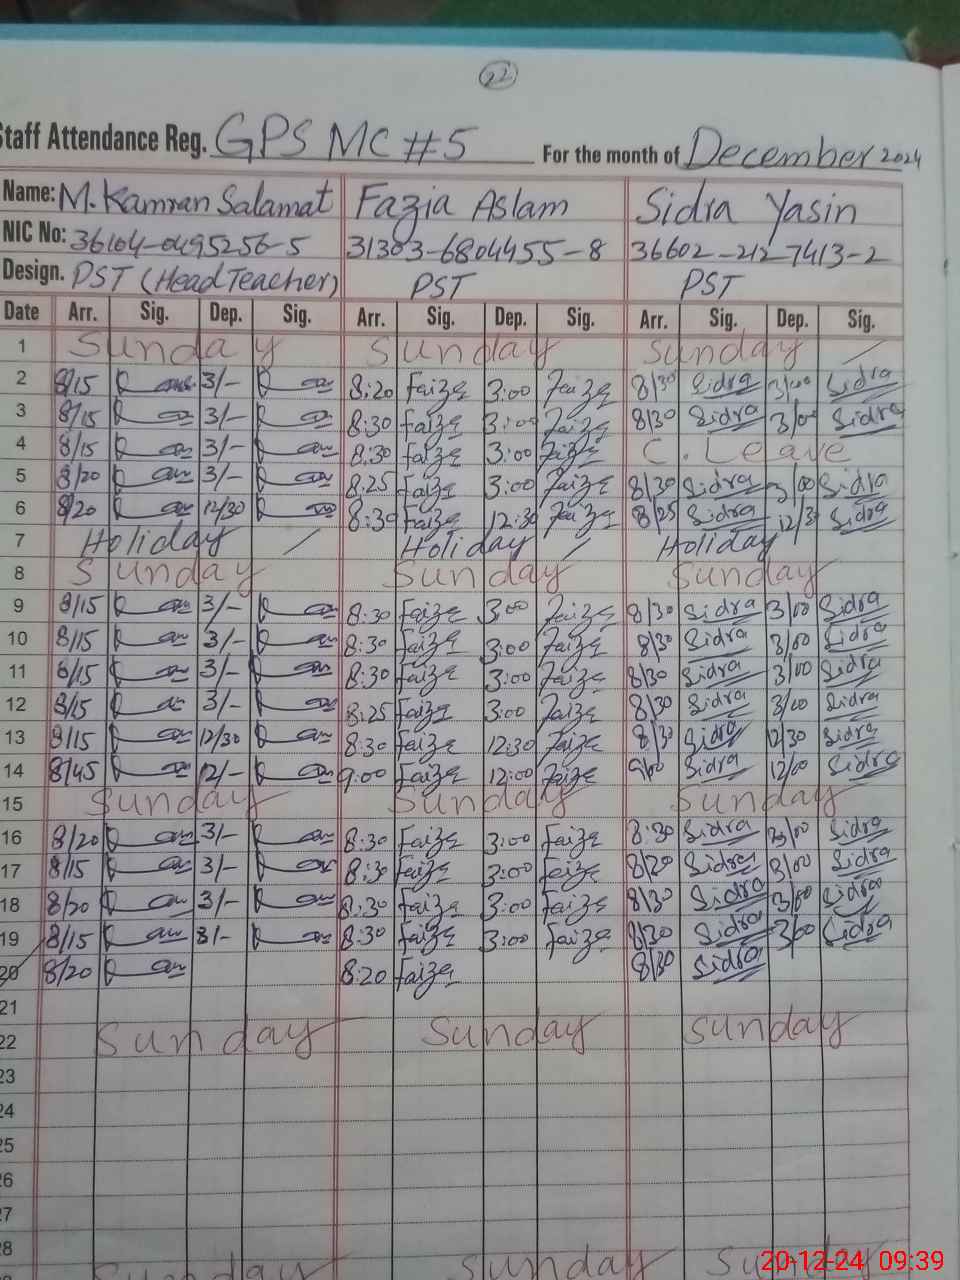 22
Staff Attendance Reg. GPS MC #5 For the month of December 2024
Name: M. Kamran Salamat Fazia Aslam Sidra Yasin
NIC No: 36104-0495256-5 31303-6804455-8 36602-212-7413-2
Design. PST (Head Teacher) PST PST
Date Arr. Sig. Dep. Sig. Arr. Sig. Dep. Sig. Arr. Sig. Dep. Sig.
1 Sunday Sunday Sunday
2 8/15 3/- 8:20 Faiza 3:00 Faiza 8/30 Sidra 3/00 Sidra
3 8/15 3/- 8:30 Faiza 3:00 Faiza 8/30 Sidra 3/00 Sidra
4 8/15 3/- 8:30 Faiza 3:00 Faiza C. Leave
5 8/20 3/- 8:25 Faiza 3:00 Faiza 8/30 Sidra 3/00 Sidra
6 8/20 12/30 8:30 Faiza 12:30 Faiza 8/25 Sidra 12/30 Sidra
7 Holiday Holiday Holiday
8 Sunday Sunday Sunday
9 8/15 3/- 8:30 Faiza 3:00 Faiza 8/30 Sidra 3/00 Sidra
10 8/15 3/- 8:30 Faiza 3:00 Faiza 8/30 Sidra 3/00 Sidra
11 8/15 3/- 8:30 Faiza 3:00 Faiza 8/30 Sidra 3/00 Sidra
12 8/15 3/- 8:25 Faiza 3:00 Faiza 8/30 Sidra 3/00 Sidra
13 8/15 12/30 8:30 Faiza 12:30 Faiza 8/30 Sidra 12/30 Sidra
14 8/45 12/- 9:00 Faiza 12:00 Faiza 9/00 Sidra 12/00 Sidra
15 Sunday Sunday Sunday
16 8/20 3/- 8:30 Faiza 3:00 Faiza 8:30 Sidra 3/00 Sidra
17 8/15 3/- 8:30 Faiza 3:00 Faiza 8/20 Sidra 3/00 Sidra
18 8/20 3/- 8:30 Faiza 3:00 Faiza 8/30 Sidra 3/00 Sidra
19 8/15 3/- 8:30 Faiza 3:00 Faiza 8/30 Sidra 3/00 Sidra
20 8/20 8:20 Faiza 8/30 Sidra
21
22 Sunday Sunday Sunday
23
24
25
26
27
28
Sunday Sunday Sunday
20-12-24 09:39